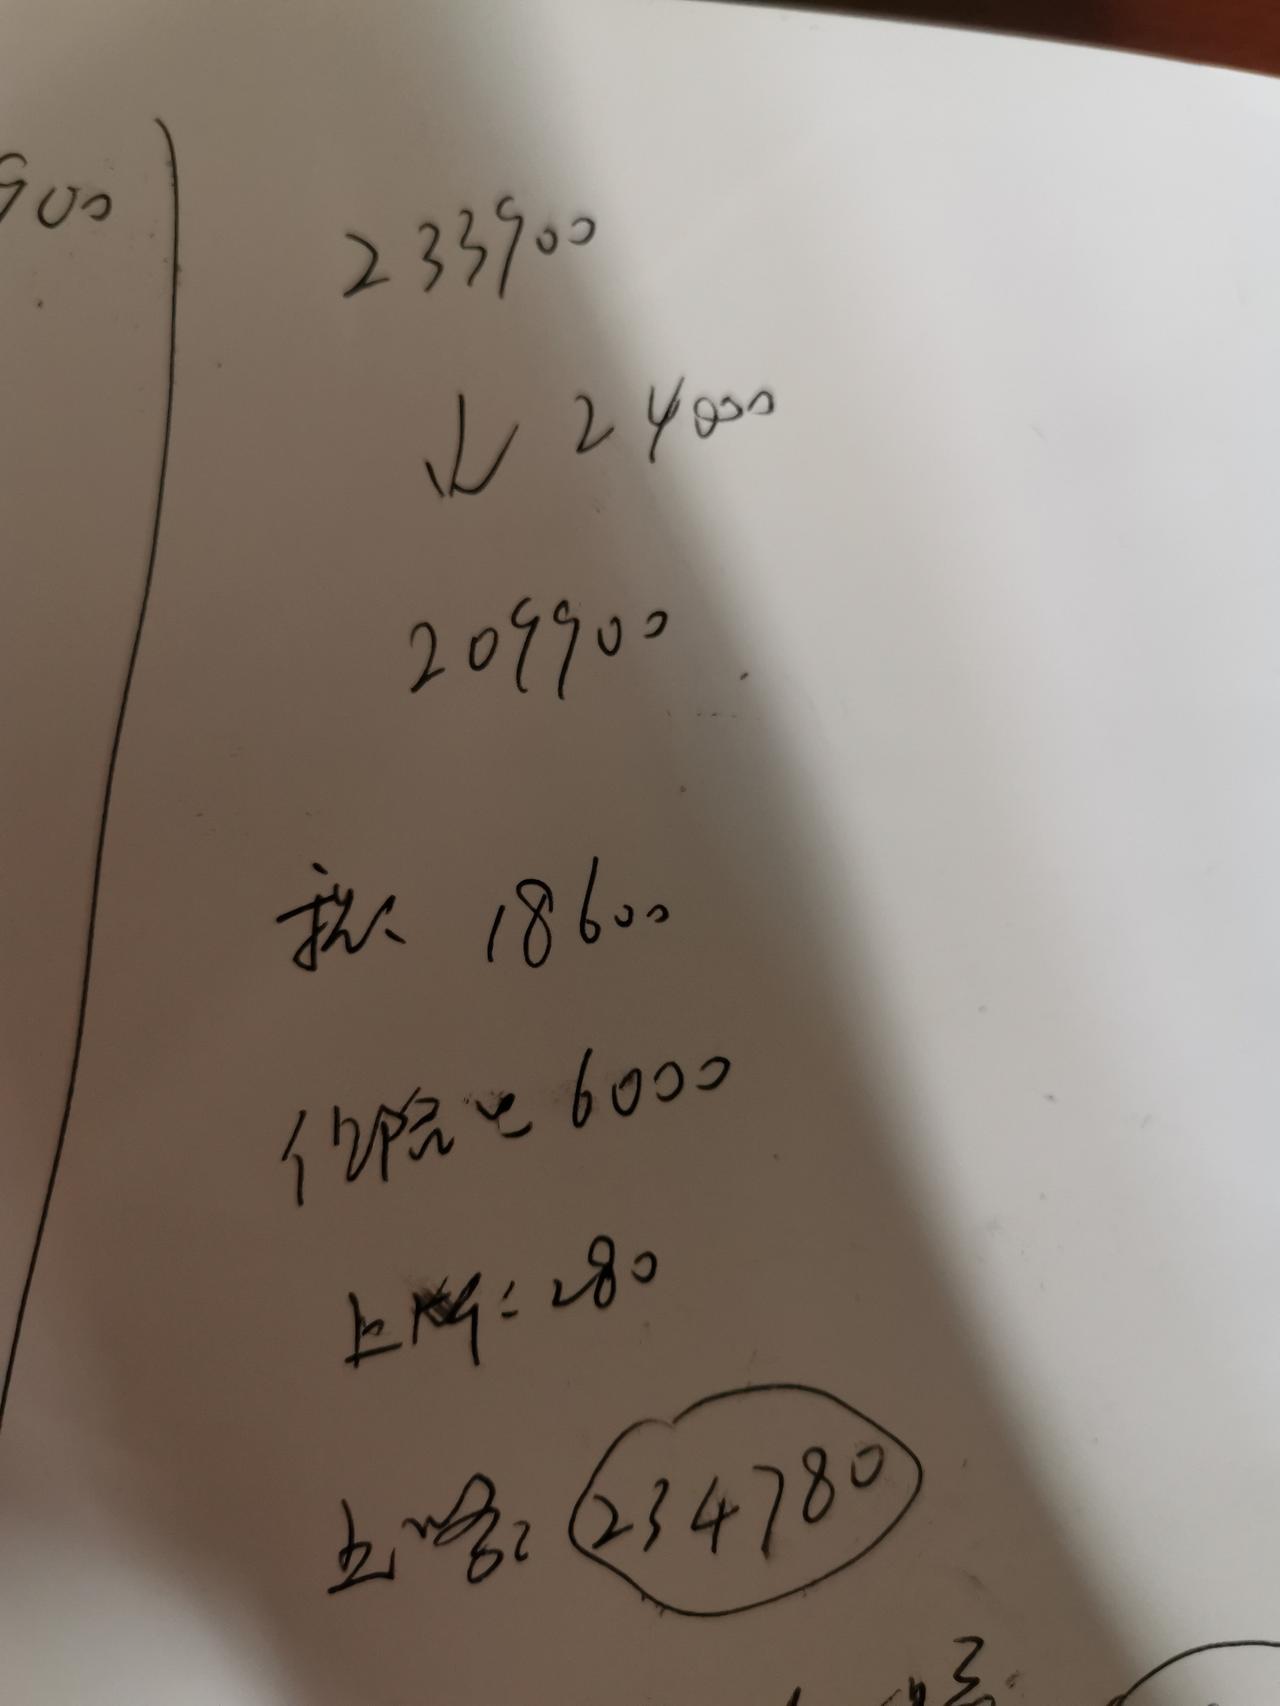 900
233900
↓ 24000
209900
税 18600
保险 6000
上牌: 280
上路: 234780
路